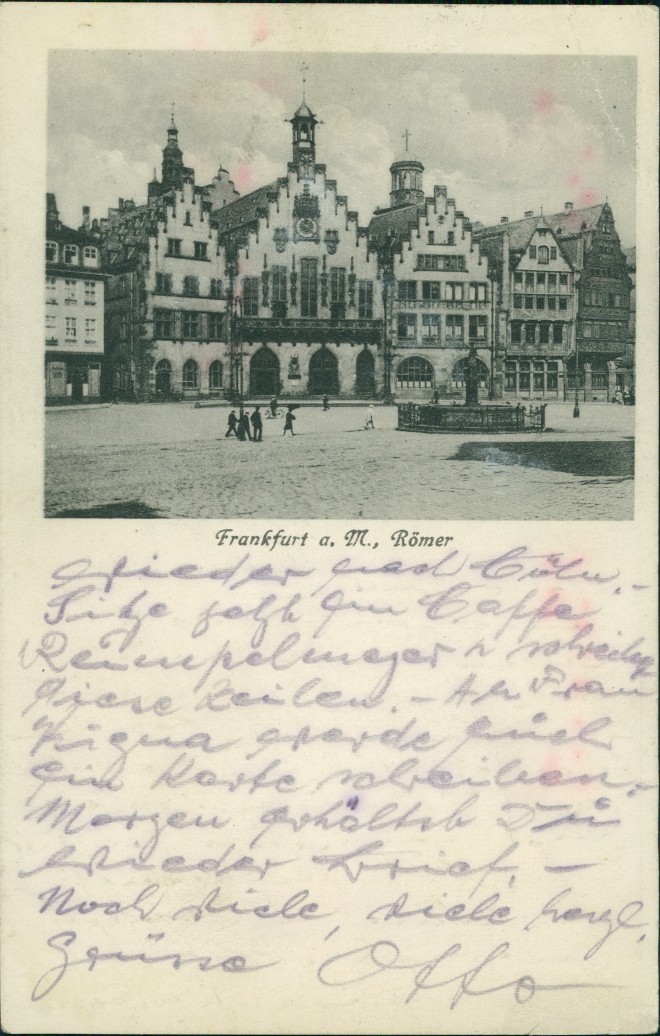 Frankfurt a. M., Römer
wieder nach Cöln.-
Sitze jetzt im Caffe
Rumpelmayer u schreibe
diese Zeilen. - An Frau
werde auch
ein Karte schreiben.
Morgen erhältst Du
wieder Brief. -
Noch viele, viele herzl.
Grüsse Otto